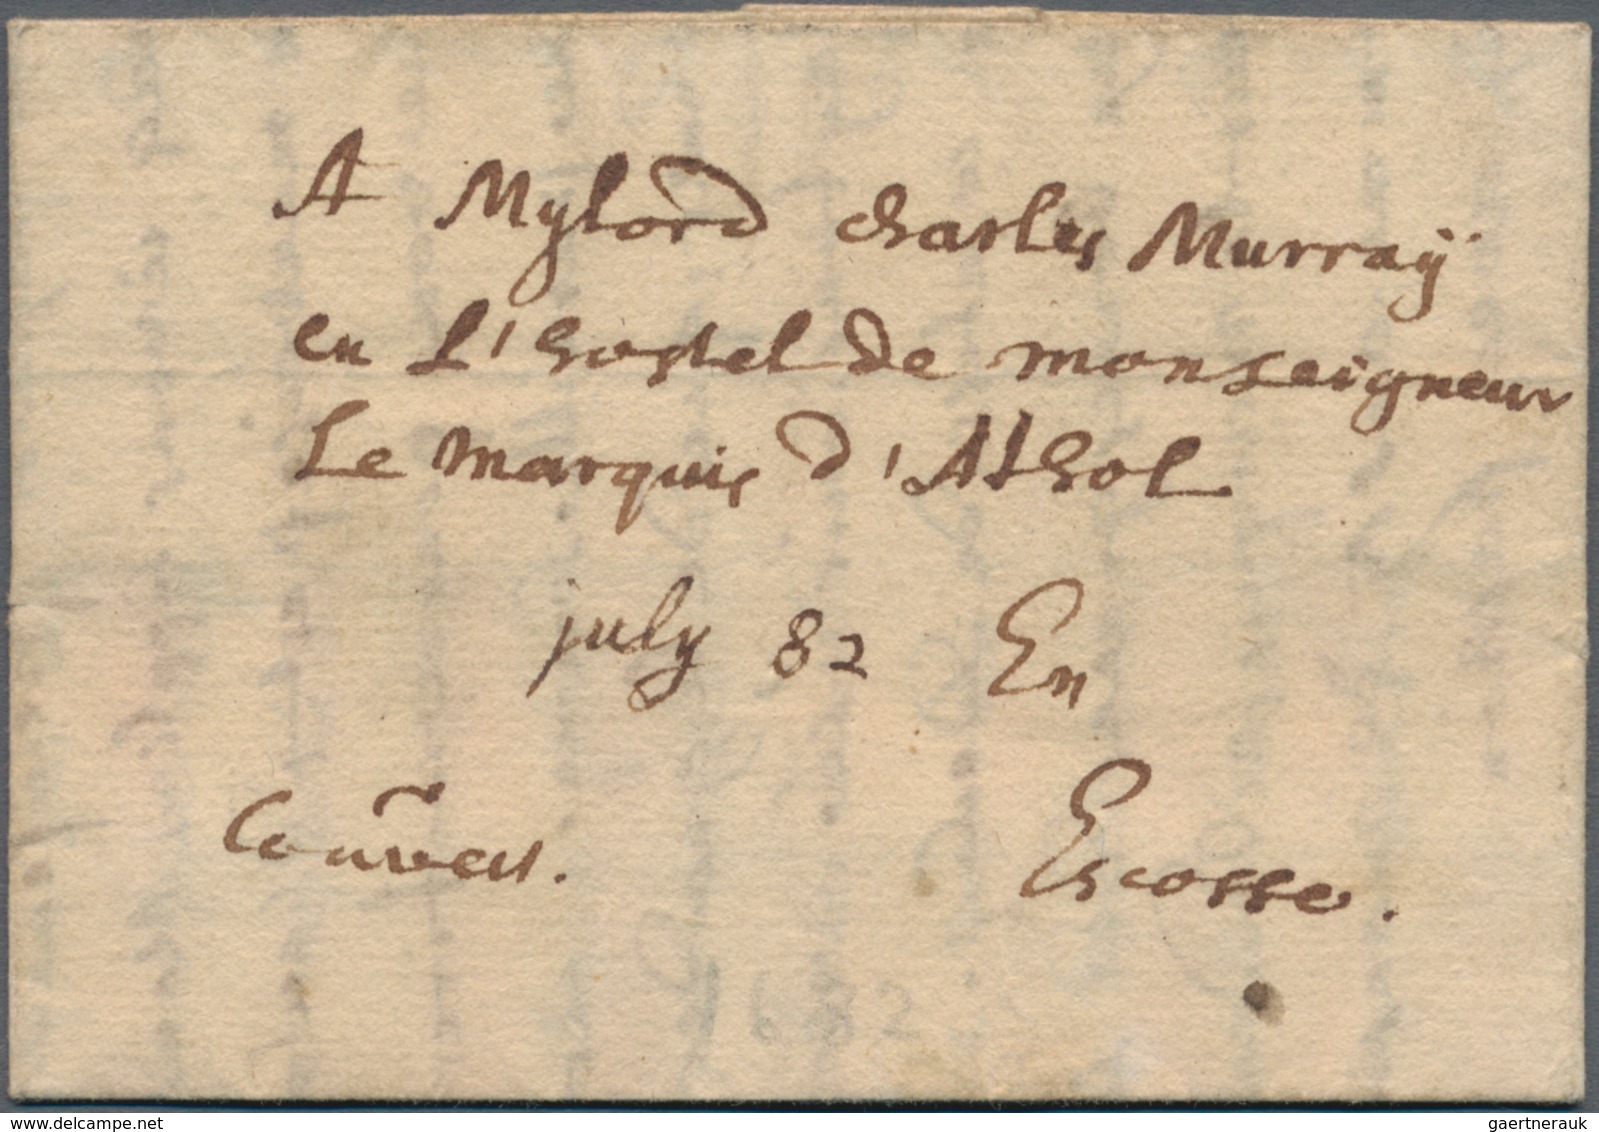 A Mylord Charles Murraÿ
en L'hostel de monseigneur
Le marquis d'Athol
july 82 En
Escosse.
1682
delcampe.net
gaertnerauk